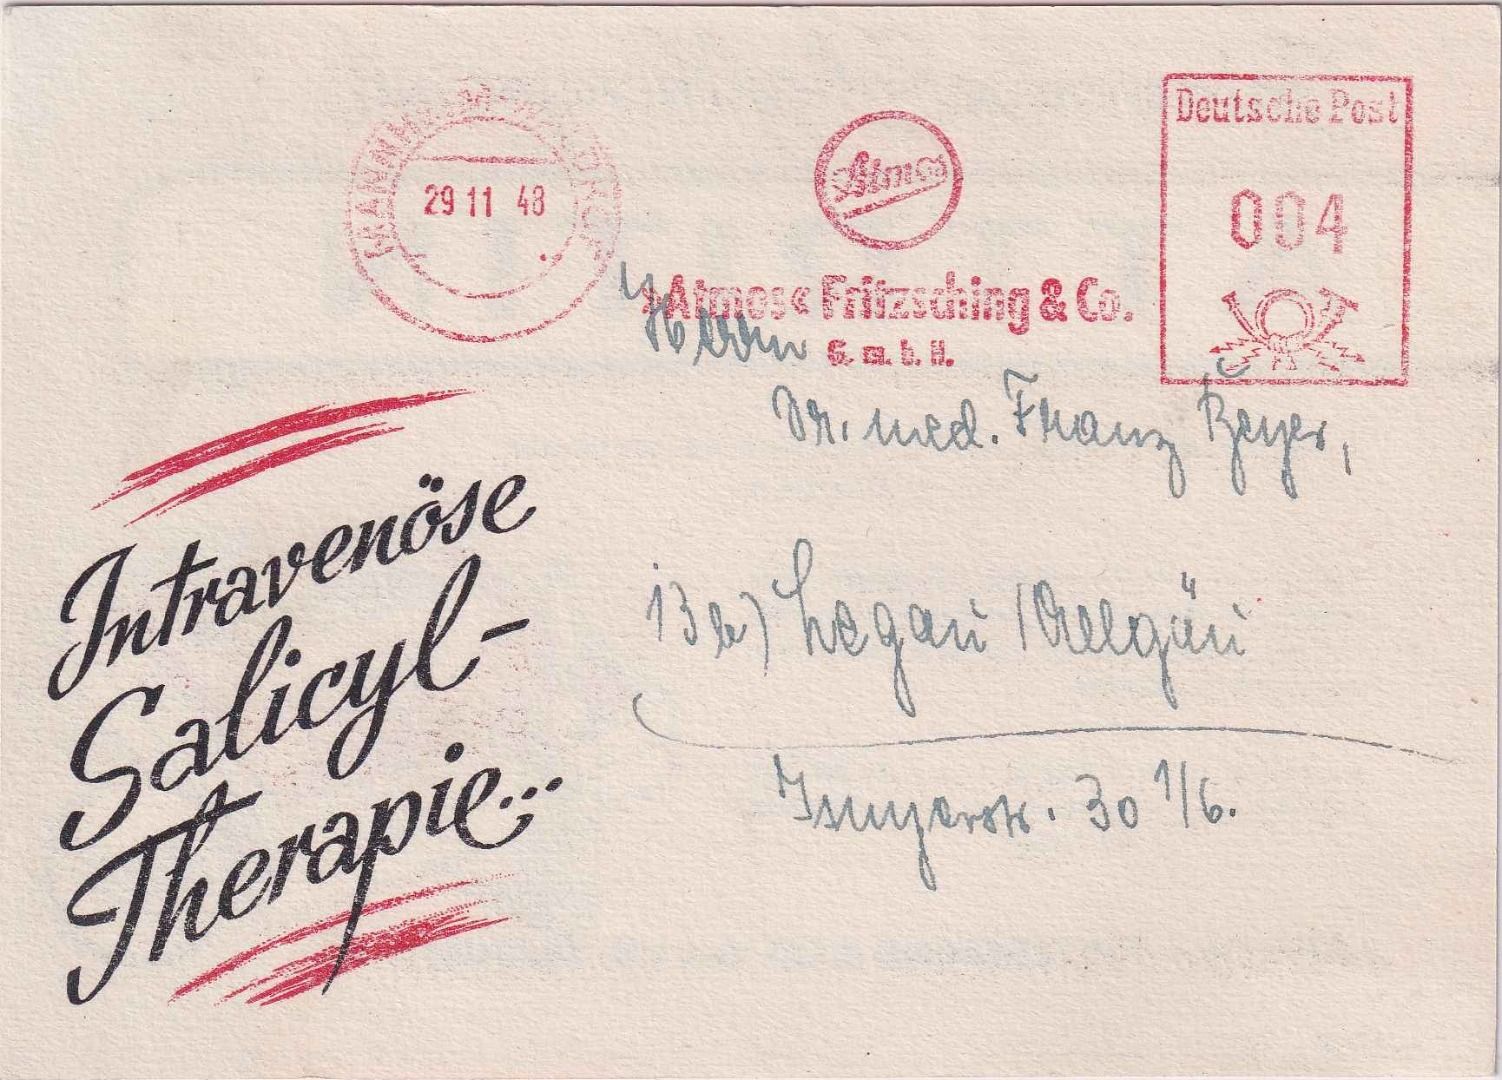 29 11 48
Atmos
»Atmos« Fritzsching & Co.
G. m. b. H.
Deutsche Post
004
Herrn
Dr. med. Franz Beyer,
13b) Legau / Allgäu
30 1/6.
Intravenöse
Salicyl-
Therapie...